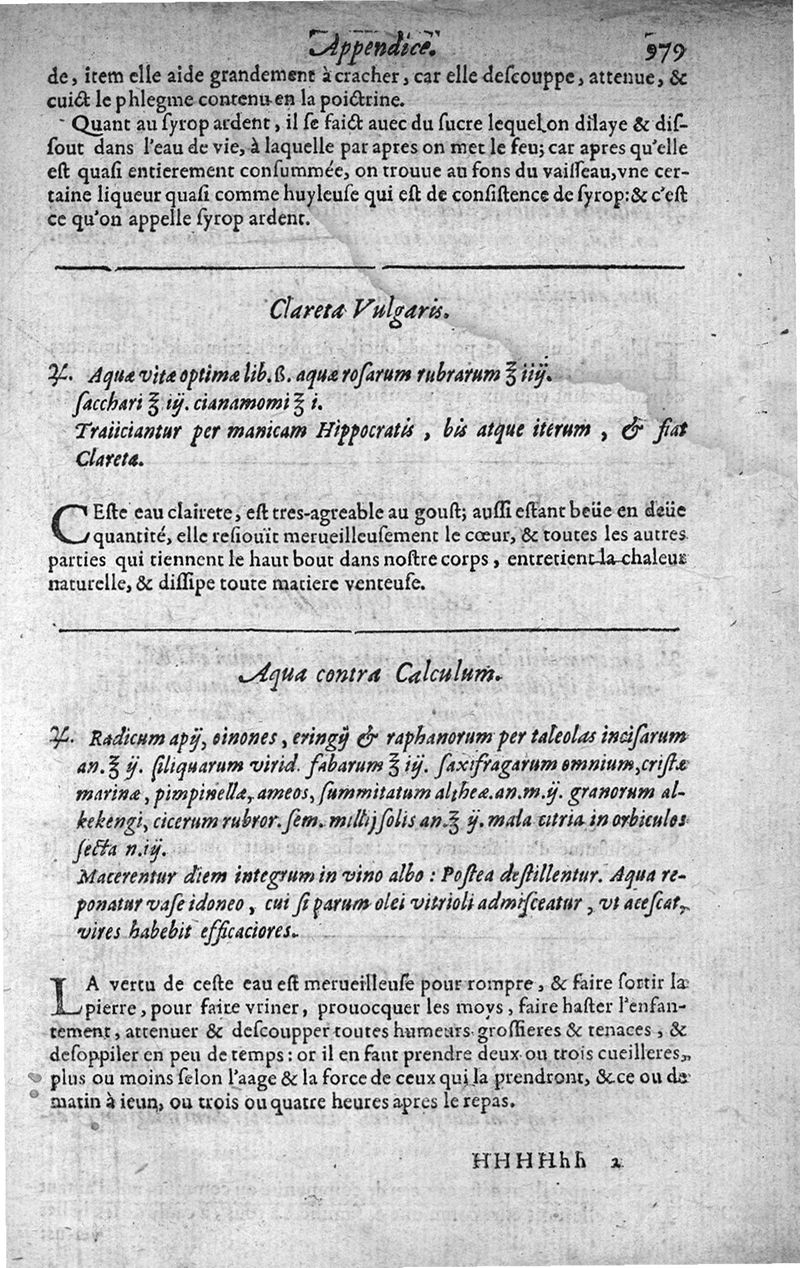 Appendice. 979
de, item elle aide grandement à cracher, car elle descouppe, attenue, &
cuict le phlegme contenu en la poictrine.
Quant au syrop ardent, il se faict auec du sucre lequel on dilaye & dis-
sout dans l'eau de vie, à laquelle par apres on met le feu; car apres qu'elle
est quasi entierement consummée, on trouue au fons du vaisseau, vne cer-
taine liqueur quasi comme huyleuse qui est de consistence de syrop: & c'est
ce qu'on appelle syrop ardent.
Clareta Vulgaris.
℞. Aquæ vitæ optimæ lib. ß. aquæ rosarum rubrarum ℥ iiij.
sacchari ℥ iij. cianamomi ℥ i.
Traiiciantur per manicam Hippocratis, bis atque iterum, & fiat
Clareta.
CEste eau clairete, est tres-agreable au goust; aussi estant beüe en deüe
quantité, elle resiouït merueilleusement le cœur, & toutes les autres
parties qui tiennent le haut bout dans nostre corps, entretient la chaleur
naturelle, & dissipe toute matiere venteuse.
Aqua contra Calculum.
℞. Radicum apij, oinones, eringij & raphanorum per taleolas incisarum
an. ℥ ij. siliquarum virid. fabarum ℥ iij. saxifragarum omnium, cristæ
marinæ, pimpinellæ, ameos, summitatum altheæ. an. m. ij. granorum al-
kekengi, cicerum rubror. sem. millij solis an. ℥ ij. mala citria in orbiculos
secta n. iij.
Macerentur diem integrum in vino albo: Postea destillentur. Aqua re-
ponatur vase idoneo, cui si parum olei vitrioli admisceatur, vt acescat,
vires habebit efficaciores.
LA vertu de ceste eau est merueilleuse pour rompre, & faire sortir la
pierre, pour faire vriner, prouocquer les moys, faire haster l'enfan-
tement, attenuer & descoupper toutes humeurs grossieres & tenaces, &
desoppiler en peu de temps: or il en faut prendre deux ou trois cueilleres,
plus ou moins selon l'aage & la force de ceux qui la prendront, & ce ou de
matin à ieun, ou trois ou quatre heures apres le repas.
HHHHhh 2